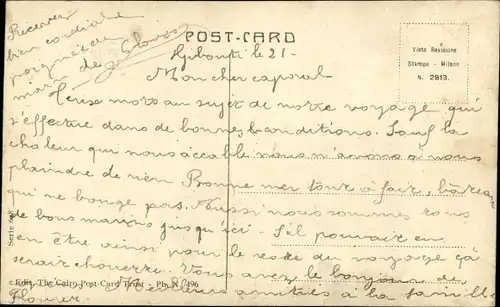 POST-CARD
Visto Revisione
Stampa - Milano
N. 2813.
Recevez
bien cordiale
poignée de
main
Gibouti le 21-
Mon cher caporal
mots au sujet de notre voyage qui
s'effectue dans de bonnes conditions. Sauf la
chaleur qui nous accable nous n'avons à nous
plaindre de rien Bonne mer tout à fait, bateau
qui ne bouge pas. Aussi nous sommes tous
de bons marins jusqu'ici. S'il pouvait en
en être ainsi pour le reste du voyage ça
serait chouette. Vous avez le bonjour de
amitiés à la famille
Serie
Edit. The Cairo Post-Card Trust - Ph. N. 496